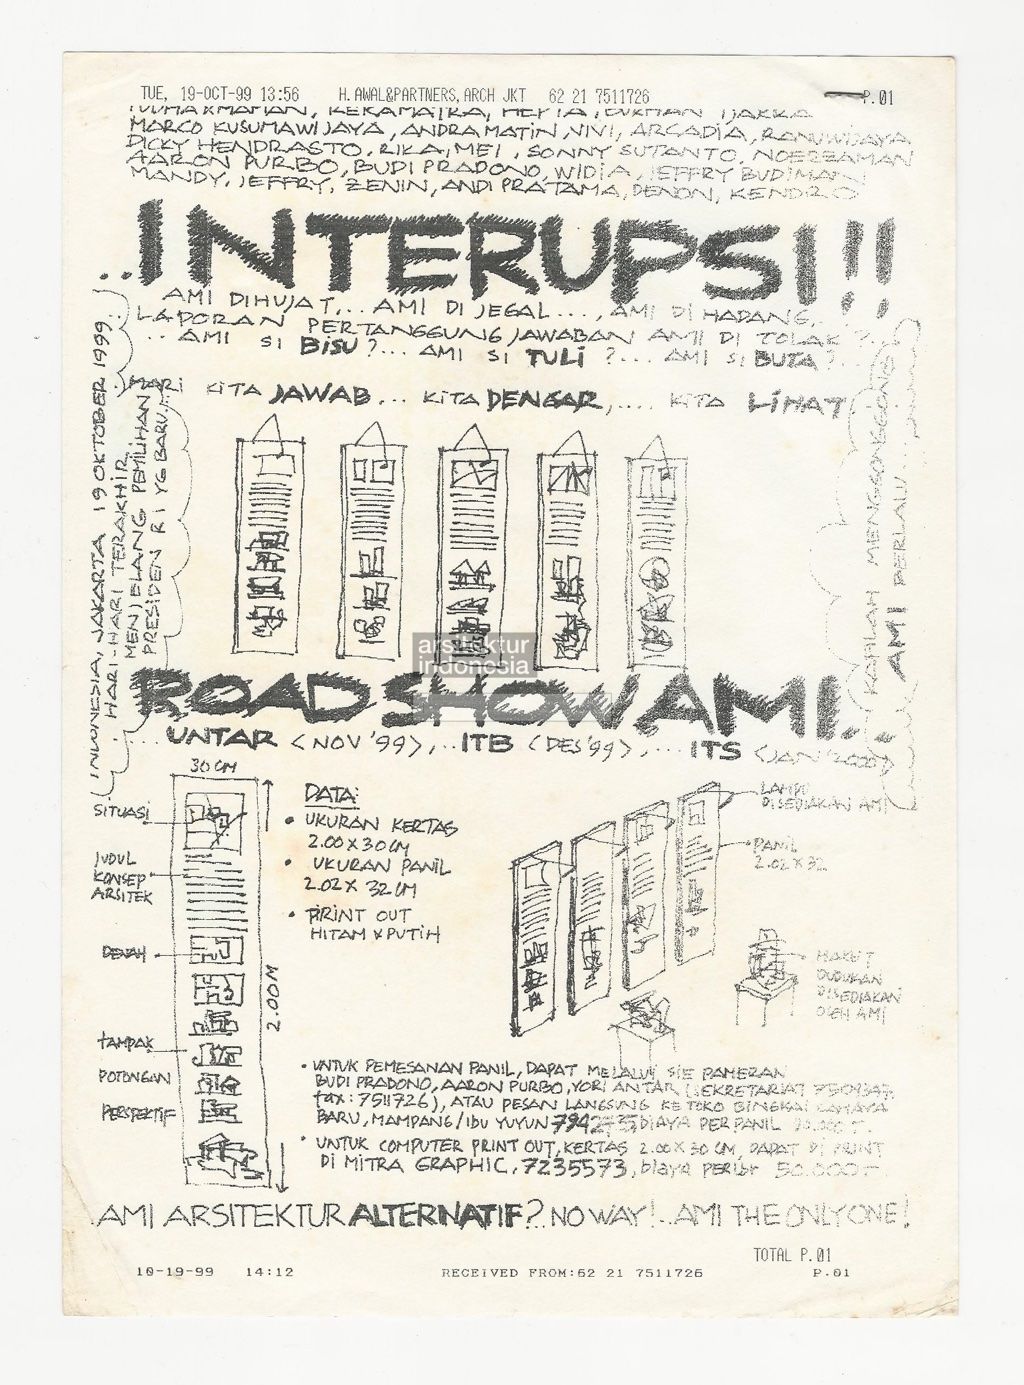 TUE, 19-OCT-99 13:56 H.AWAL&PARTNERS,ARCH JKT 62 21 7511726 P.01
MARCO KUSUMAWIJAYA, ANDRA MATIN, NIVI, ARCADIA, RANUWIJAYA,
DICKY HENDRASTO, RIKA, MEI, SONNY SUTANTO, NOERZAMAN
AARON PURBO, BUDI PRADONO, WIDIA, JEFFRY BUDIMAN
MANDY, JEFFRY, ZENIN, ANDI PRATAMA, DENON, KENDRO
..INTERUPSI!!!
AMI DIHUJAT... AMI DI JEGAL...., AMI DI HADANG...
LAPORAN PERTANGGUNG JAWABAN AMI DI TOLAK?.
.. AMI SI BISU?... AMI SI TULI?.... AMI SI BUTA?..
MARI KITA JAWAB... KITA DENGAR,.... KITA LIHAT
INDONESIA, JAKARTA 19 OKTOBER 1999..
HARI-HARI TERAKHIR
MENJELANG PEMILIHAN
PRESIDEN RI YG BARU...
AMI PERLALU...
arsitektur
indonesia
ROAD SHOW AMI...
...UNTAR (NOV '99),..ITB (DES '99),...ITS (JAN '2000)
30 CM
SITUASI
JUDUL
KONSEP
ARSITEK
DENAH
TAMPAK
POTONGAN
PERSPEKTIF
2.00 M
DATA:
• UKURAN KERTAS
2.00 X 30 CM
• UKURAN PANIL
2.02 X 32 CM
• PRINT OUT
HITAM & PUTIH
LAMPU
DISEDIAKAN AMI
PANIL
2.02 X 32
MAKET
DUDUKAN
DISEDIAKAN
OLEH AMI
• UNTUK PEMESANAN PANIL, DAPAT MELALUI SIE PAMERAN
BUDI PRADONO, AARON PURBO, YORI ANTAR (SEKRETARIAT
fax: 7511726), ATAU PESAN LANGSUNG KE TOKO BINGKAI CAHAYA
BARU, MAMPANG/Ibu YUYUN BIAYA PER PANIL
• UNTUK COMPUTER PRINT OUT, KERTAS 2.00 X 30 CM, DAPAT DI PRINT
DI MITRA GRAPHIC, 7235573, biaya perlbr 50.000,-
AMI ARSITEKTUR ALTERNATIF?.. NO WAY!.. AMI THE ONLY ONE!
TOTAL P.01
10-19-99 14:12 RECEIVED FROM:62 21 7511726 P.01